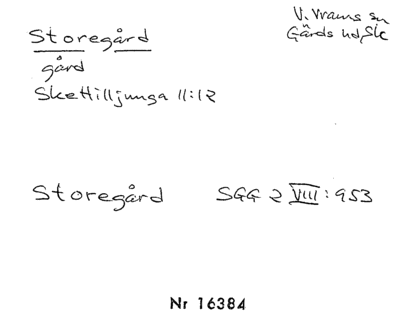 Storegård
V. Vrams sn
Gärds hd, Sk
gård
Skettilljunga 11:12
Storegård SGG 2 VIII: 953
Nr 16384